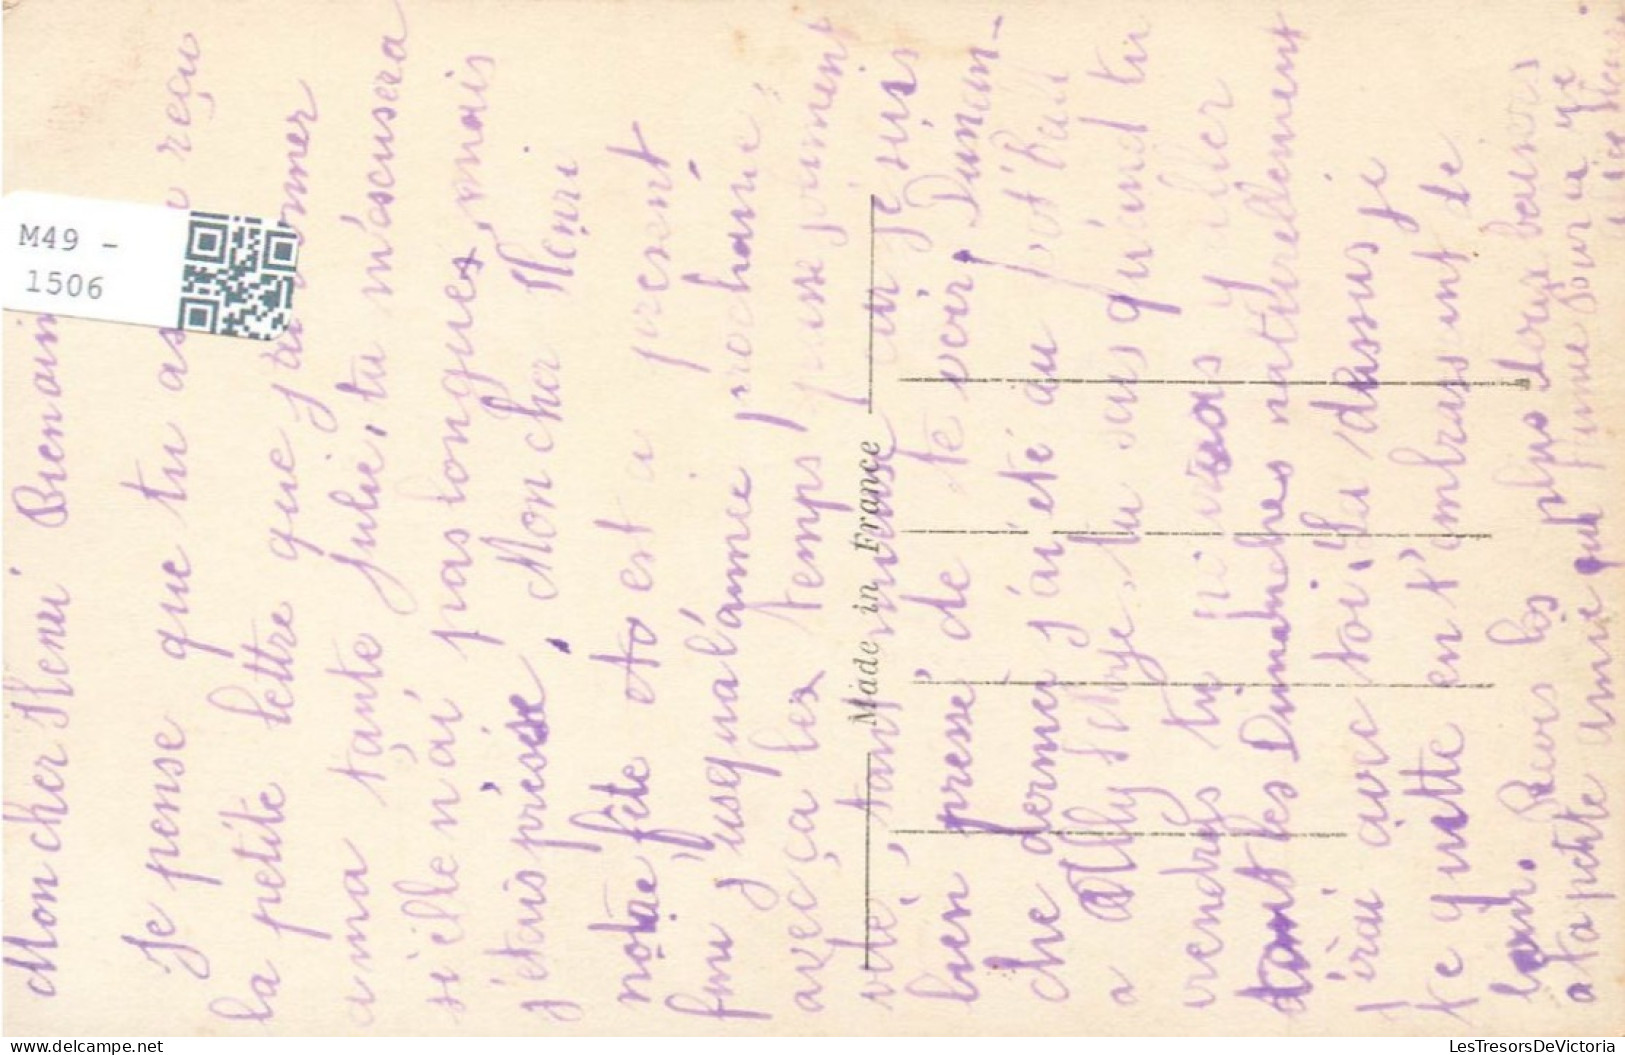 Mon cher Henri Bienaimé
Je pense que tu as reçu
la petite lettre que j'ai donner
a ma tante Julie, tu m'escusera
si elle n'ai pas longues, mais
j'étais présse, Mon cher Henri
notre fête est a present
fini jusqu'al'année prochaine,
avec ça les temps passe joliment
vite, tant mieuse car je suis
bien pressé de te voir, Diman-
che dernier j'ai été au foot Ball
a Ally tu sais qu'and tu
viendras tu ira y aller
tout les Dimanches natturellement
j'irai avec toi, la dessus je
te quitte en t'embrassant de
loin. Recois les plus doux baisers
a ta petite amie qui t'aime pour la vie
Made in France
M49 -
1506
delcampe.net
LesTresorsDeVictoria